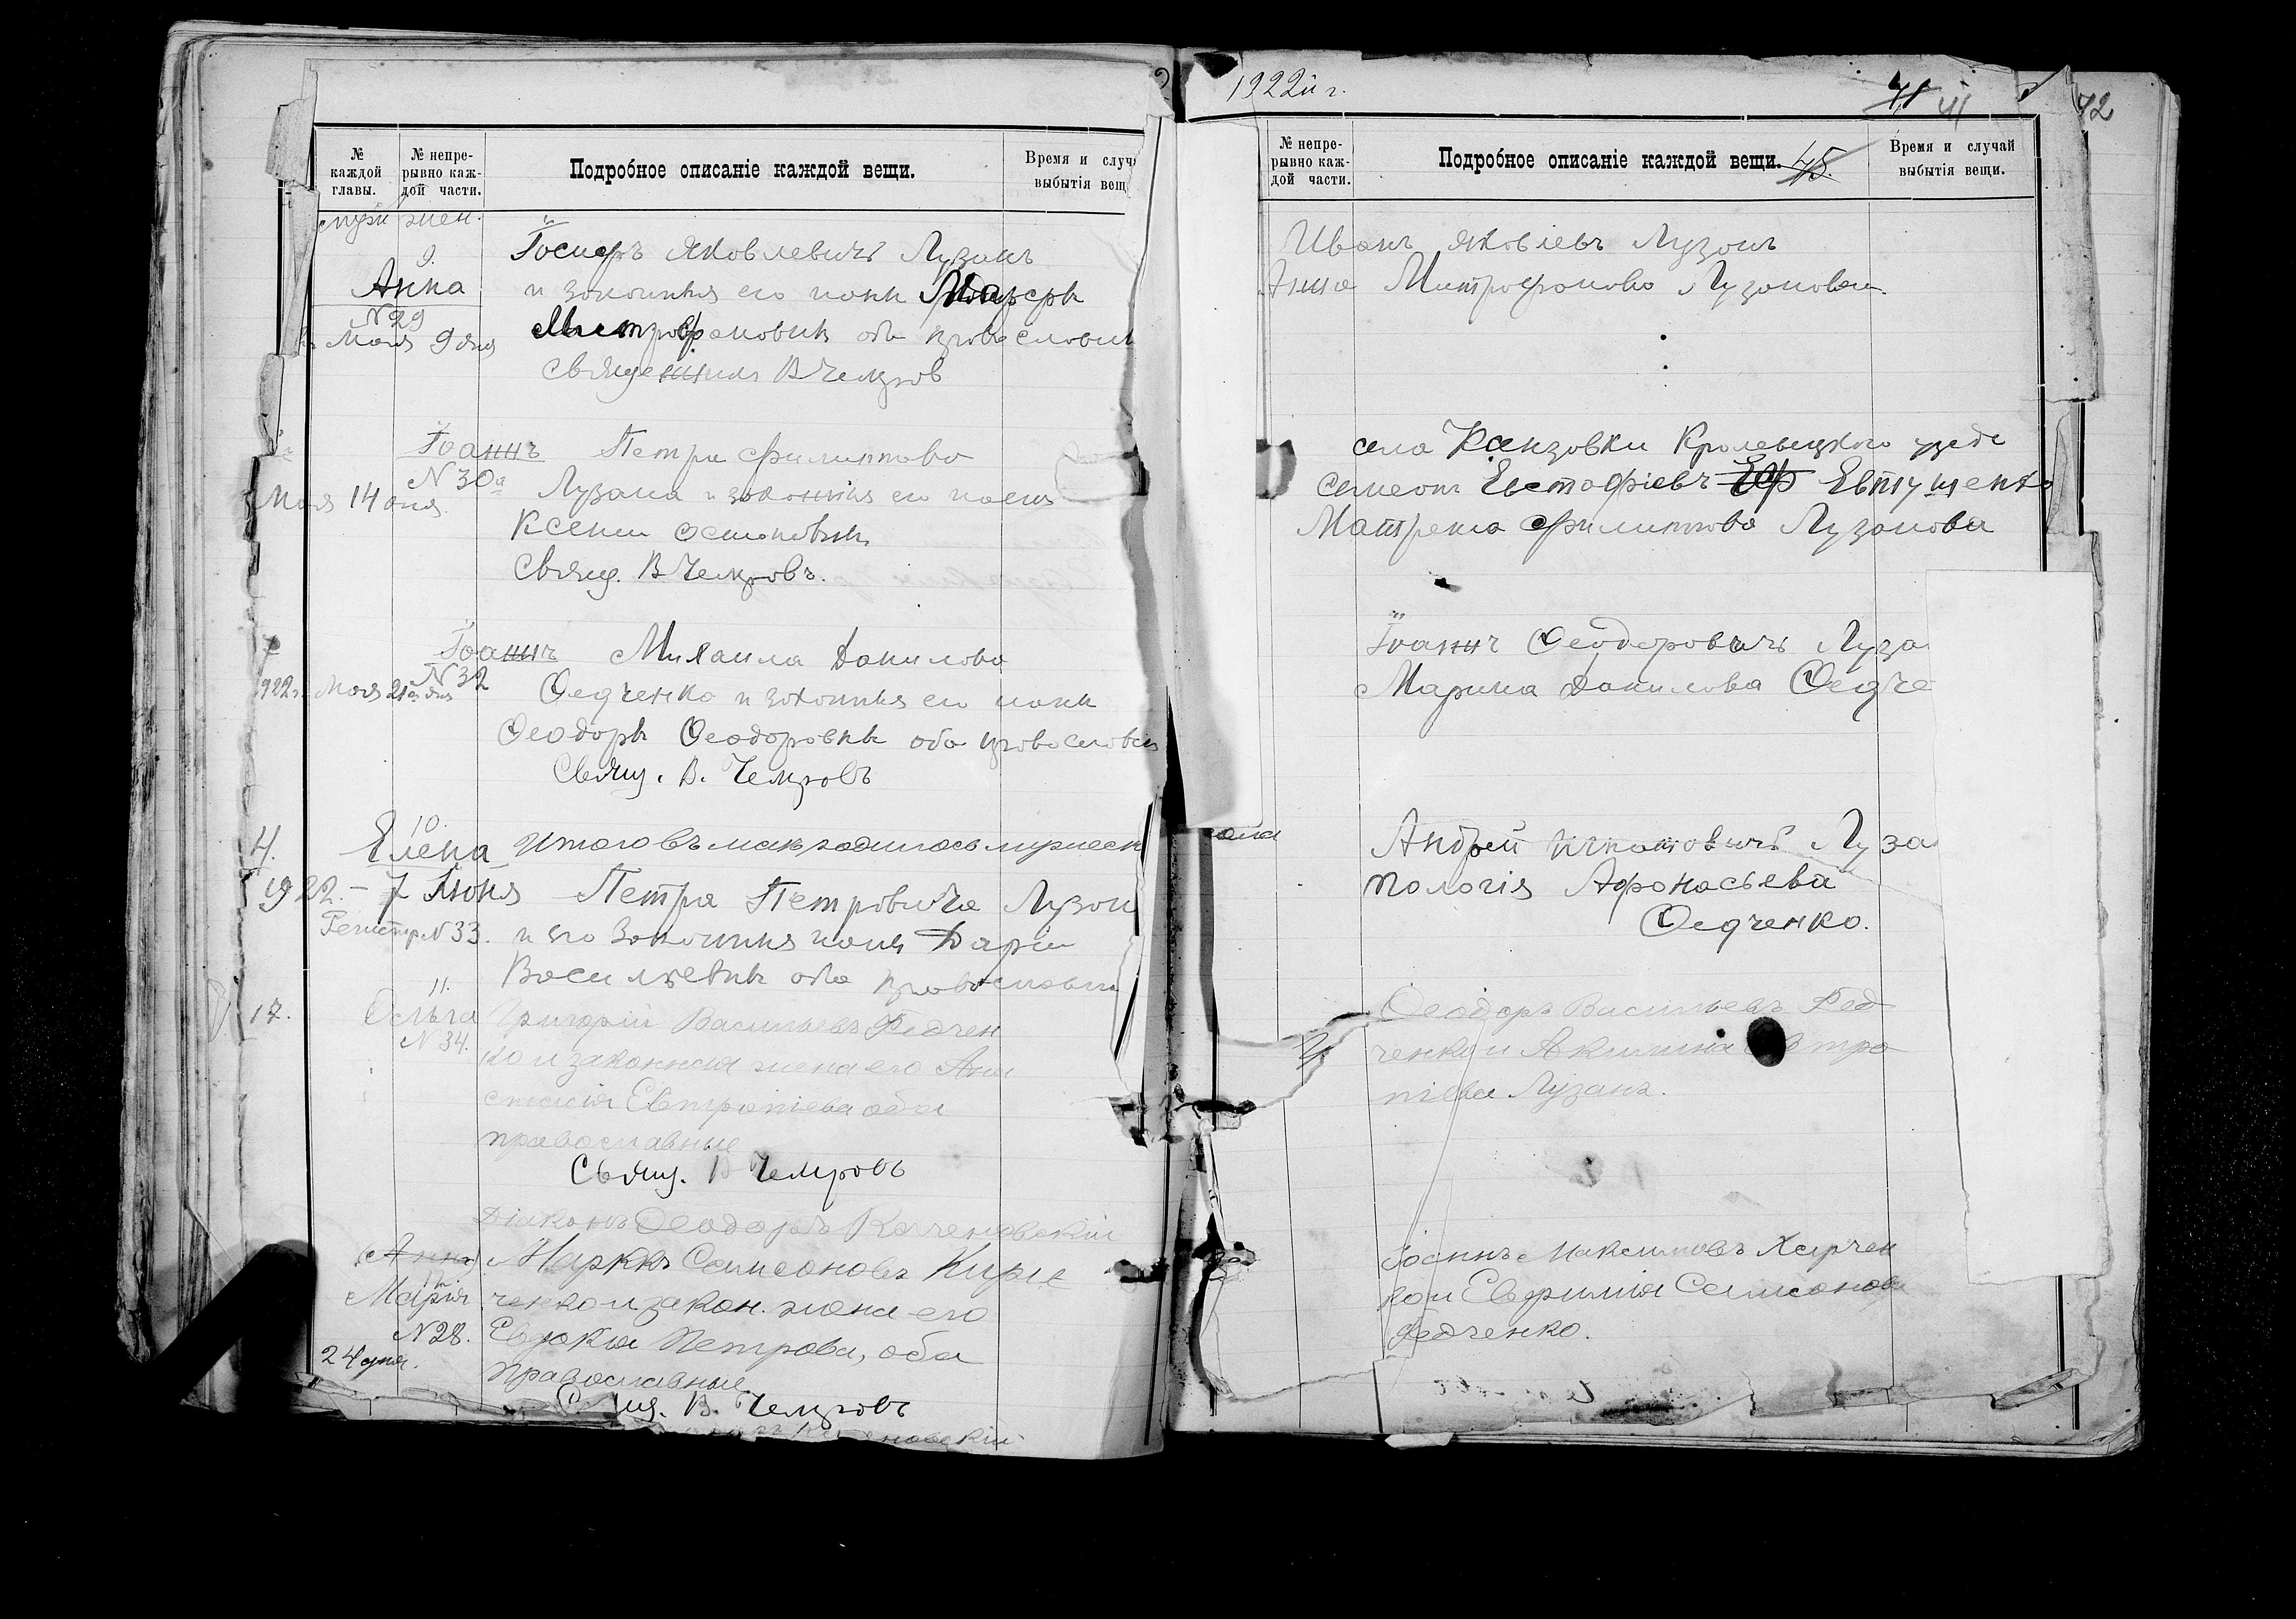 1922й г.
41
42
№ каждой главы.
№ непрерывно каждой части.
Подробное описаніе каждой вещи.
Время и случ
выбытія вещ
муж жен.
9.
Анна
N 29
Мая 9 дня
Іосифъ Яковлевичъ Лузанъ
и законныя его жены
Митрофановны оба православны
Священникъ В Чемеров
Іоаннъ
N 30й
Мая 14 дня
Петра Филиппова
Лузана и законныя его жены
Ксении
Свящ. В Чемеровъ.
Іоаннъ
N 32
1922 г. Мая 21 дня
Михаила Данилова
Ѳедченко и законныя его жены
Ѳеодоры Ѳеодоровны оба православны
Свящ. В. Чемеровъ
4.
10.
Елена
Итого въ мае родилось
1922. – 7 Июня
N 33.
Петра Петровича Лузан
и его законныя жены Даріи
Васильевны оба православны
17.
11.
Ольга
N 34.
Григорій Васильевъ Федчен
ко и законная жена его Ана
стасія Евтропіева оба
православные
Свящ. В Чемеровъ
Діаконъ Ѳеодоръ Каченовскій
(Анна)
Марія
N 28.
24 дня.
Маркъ Самсоновъ Кирие
ченко и закон. жена его
Евдокія Петрова, оба
православные
Свящ. В. Чемеровъ
№ непрерывно каждой части.
Подробное описаніе каждой вещи.
45.
Время и случай
выбытія вещи.
Иванъ Яковлевъ Лузанъ
Анна Митрофанова Лузанова.
села Кролевецкого уезда
Симеонъ Евстафіевъ Евтушенко
Матрена Филиппова Лузанова
Іоаннъ Ѳеодоровичъ Луза
Марина Данилова Ѳедче
Андрей Игнатовичъ Луза
Пелагія Афонасьева
Ѳедченко.
Ѳеодоръ Васильевъ Фед
ченко и Акилина Евтро
піева Лузанъ.
Іоаннъ Максимовъ Харчен
ко и Евфимія Самсонова
Федченко.